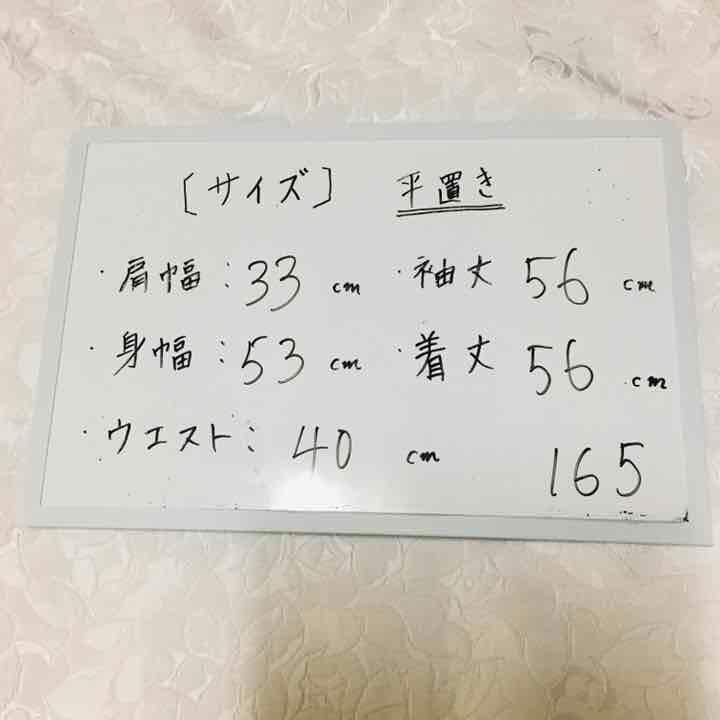 [サイズ] 平置き
・肩幅：33 cm ・袖丈 56 cm
・身幅：53 cm ・着丈 56 cm
・ウエスト：40 cm
165